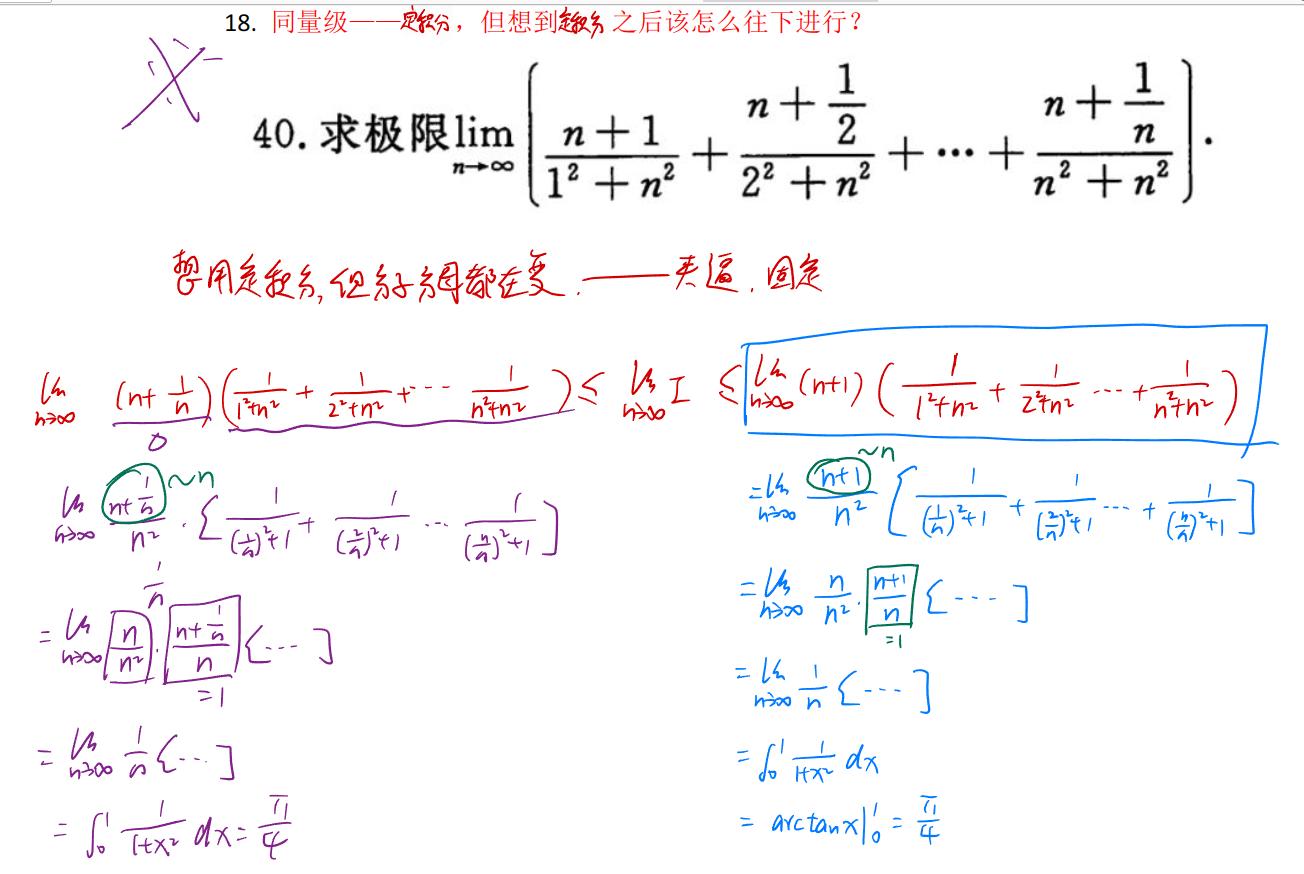 18. 同量级——定积分，但想到定积分之后该怎么往下进行？
40. 求极限 lim n→∞ [ (n+1)/(1²+n²) + (n+1/2)/(2²+n²) + ⋯ + (n+1/n)/(n²+n²) ].
想用定积分, 但分子分母都在变. —— 夹逼. 固定
lim n→∞ (n+1/n) ( 1/(1²+n²) + 1/(2²+n²) + ⋯ 1/(n²+n²) ) ≤ lim n→∞ I ≤ lim n→∞ (n+1) ( 1/(1²+n²) + 1/(2²+n²) ⋯ + 1/(n²+n²) )
0
lim n→∞ (n+1/n)/n² · { 1/((1/n)²+1) + 1/((2/n)²+1) ⋯ 1/((n/n)²+1) ]
~n
1/n
= lim n→∞ n/n² · (n+1/n)/n { ⋯ ]
=1
= lim n→∞ 1/n { ⋯ ]
= ∫₀¹ 1/(1+x²) dx = π/4
= lim n→∞ (n+1)/n² [ 1/((1/n)²+1) + 1/((2/n)²+1) ⋯ + 1/((n/n)²+1) ]
~n
= lim n→∞ n/n² · (n+1)/n { ⋯ ]
=1
= lim n→∞ 1/n { ⋯ ]
= ∫₀¹ 1/(1+x²) dx
= arctanx|₀¹ = π/4